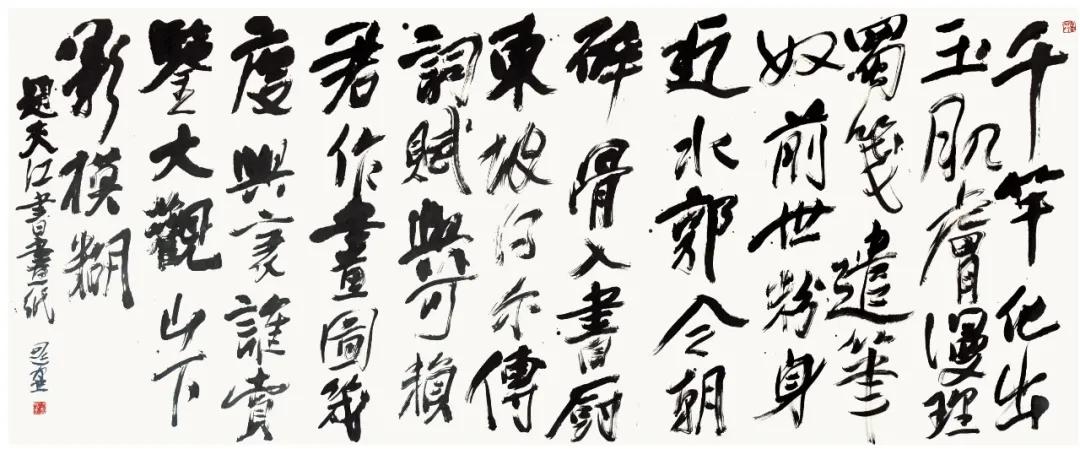 千竿化出
玉肌膚漫理
蜀箋遣筆
奴前世粉身
近水郭今朝
碎骨入書厨
東坡得尔傳
詞賦與可賴
君作畫圖幾
度興衰誰賞
鑒大觀山下
影模糊
題夾江書畫紙